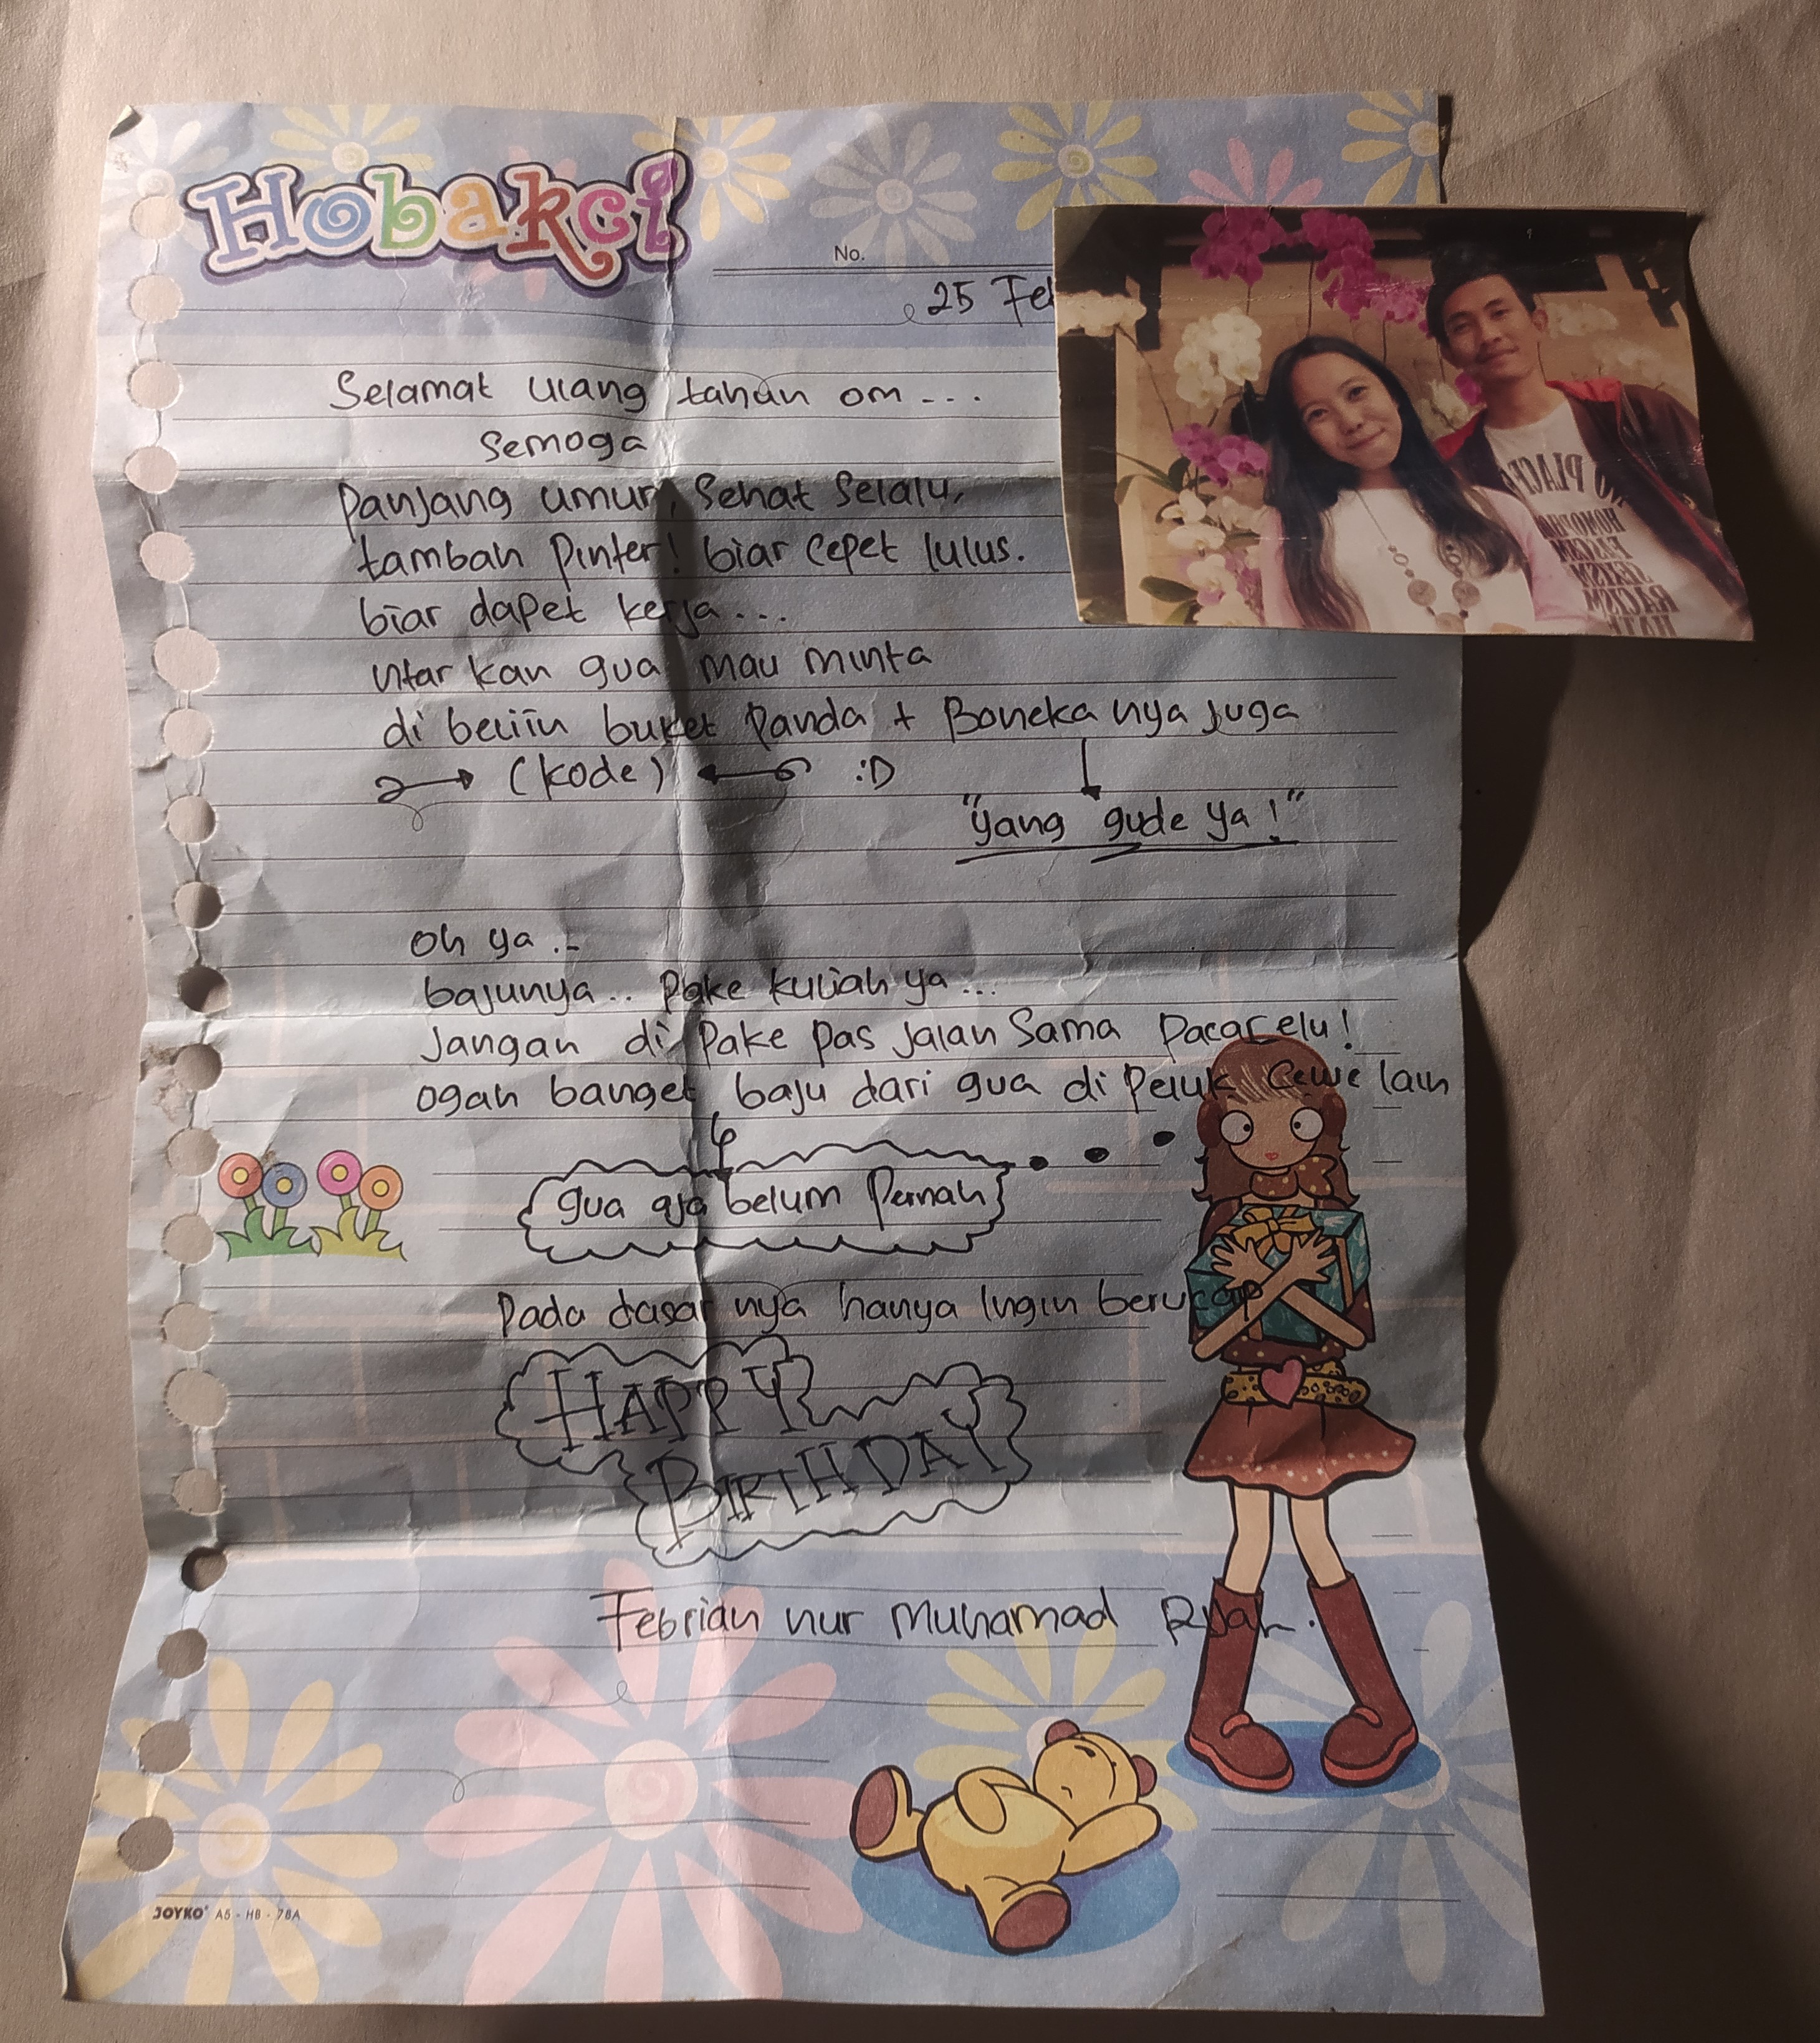 Hobakci
No.
25 Feb
Selamat ulang tahun om ...
Semoga
Panjang umur, Sehat Selalu,
tambah Pinter! biar cepet lulus.
biar dapet kerja ...
ntar kan gua mau minta
di beliin buket Panda + Boneka nya juga
(kode) :D
"yang gude ya!"
oh ya ..
bajunya .. Pake kuliah ya ...
Jangan di Pake pas Jalan Sama Pacar elu!
ogah banget baju dari gua di Peluk cewe lain
gua aja belum Pernah
Pada dasar nya hanya Ingin berucap
HAPPY
BIRTHDAY
Febrian nur Muhamad
JOYKO A5 - HB - 78A
NO PLACE
HOMOPHO
FASCISM
SEXISM
RACISM
HATE